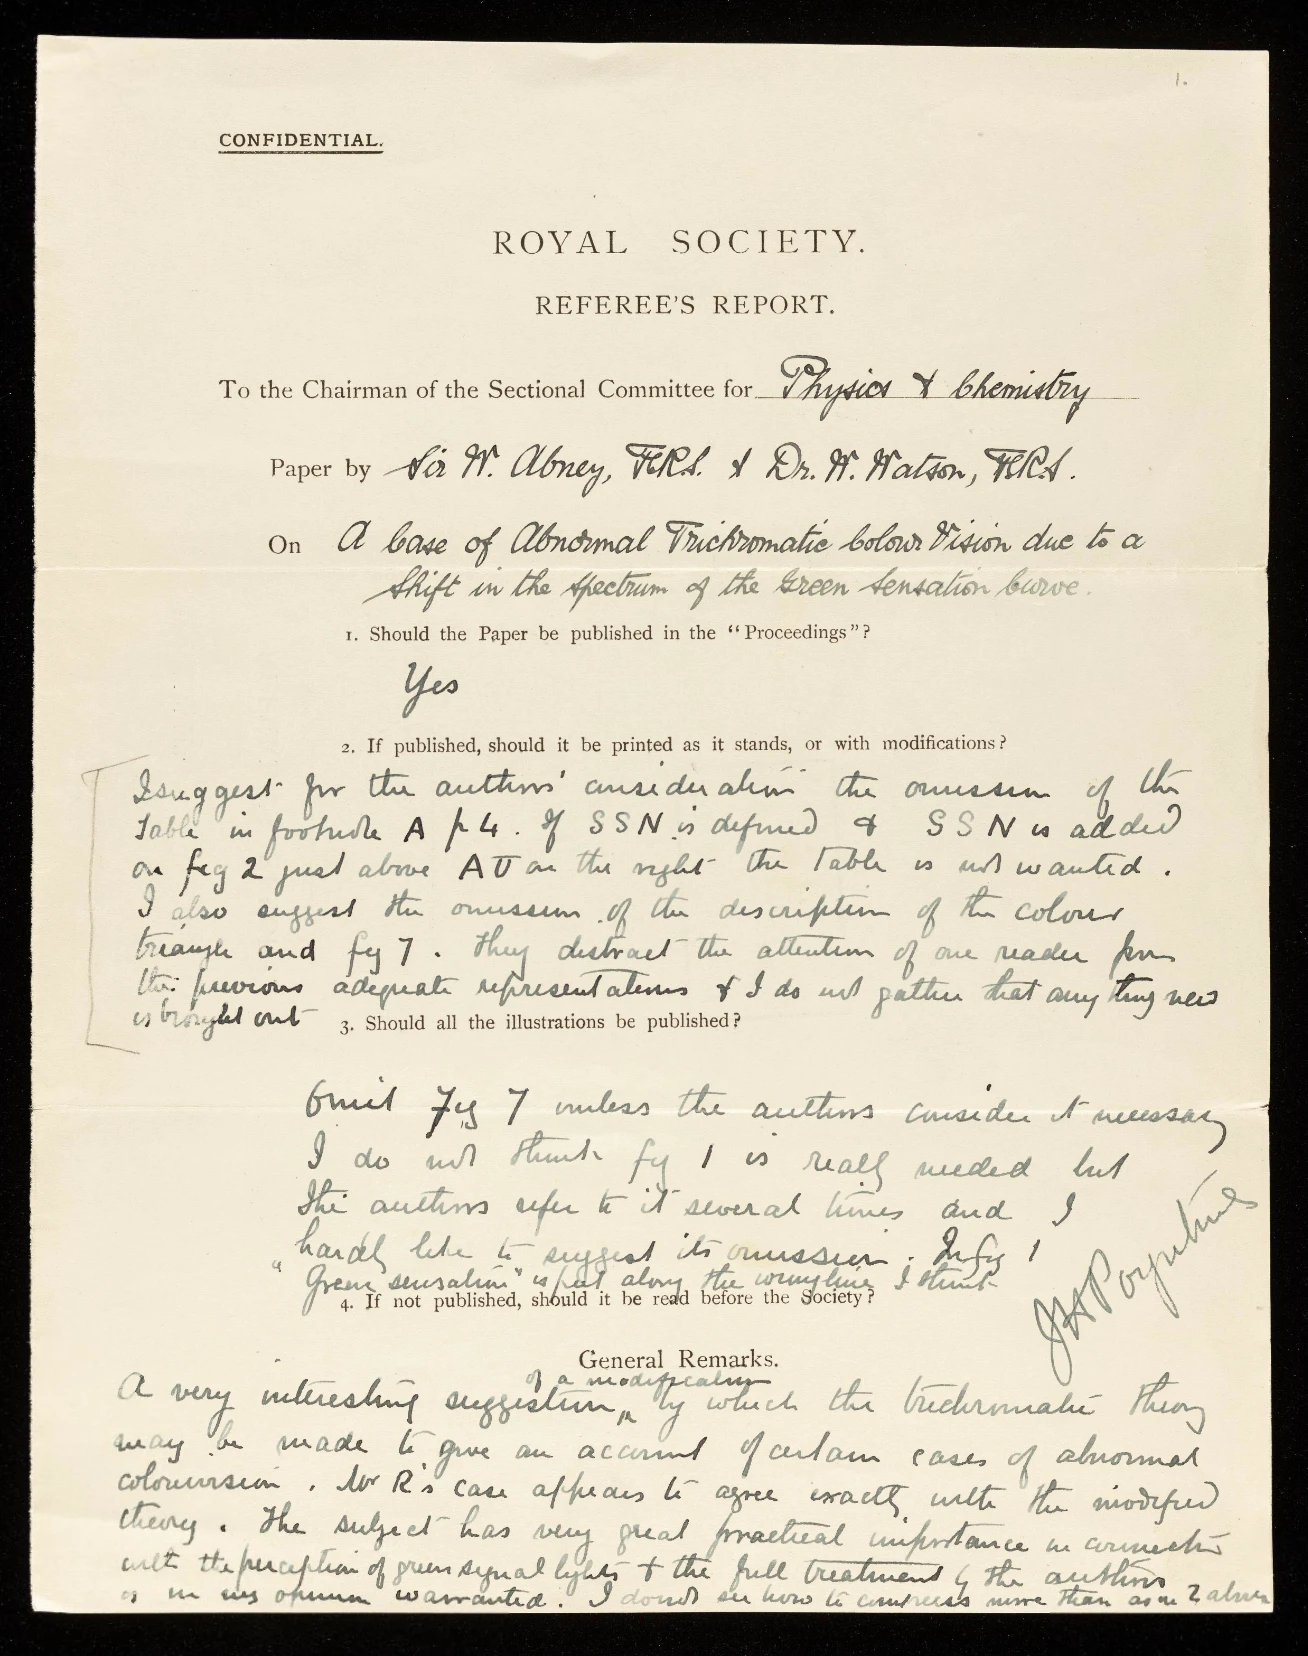 1.
CONFIDENTIAL.
ROYAL SOCIETY.
REFEREE'S REPORT.
To the Chairman of the Sectional Committee for Physics & Chemistry
Paper by Sir W. Abney, F.R.S. & Dr. W. Watson, F.R.S.
On A Case of Abnormal Trichromatic Colour Vision due to a
Shift in the Spectrum of the Green Sensation Curve.
1. Should the Paper be published in the "Proceedings"?
Yes
2. If published, should it be printed as it stands, or with modifications?
I suggest for the authors' consideration the omission of the
Table in footnote A p 4. If SSN is defined & SSN is added
on fig 2 just above AU on the right the Table is not wanted.
I also suggest the omission of the description of the colour
triangle and fig 7. They distract the attention of one reader from
the previous adequate representations & I do not gather that any thing new
is brought out
3. Should all the illustrations be published?
Omit Fig 7 unless the authors consider it necessary
I do not think fig 1 is really needed but
the authors refer to it several times and I
hardly like to suggest its omission. In fig 1
"Green sensation" is put along the wrong line I think
JHPoynting
4. If not published, should it be read before the Society?
General Remarks.
of a modification
A very interesting suggestion by which the trichromatic theory
may be made to give an account of certain cases of abnormal
colour vision. Mr R's case appears to agree exactly with the modified
theory. The subject has very great practical importance in connection
with the perception of green signal lights & the full treatment by the authors
is in my opinion warranted. I do not see how to compress more than as in 2 above